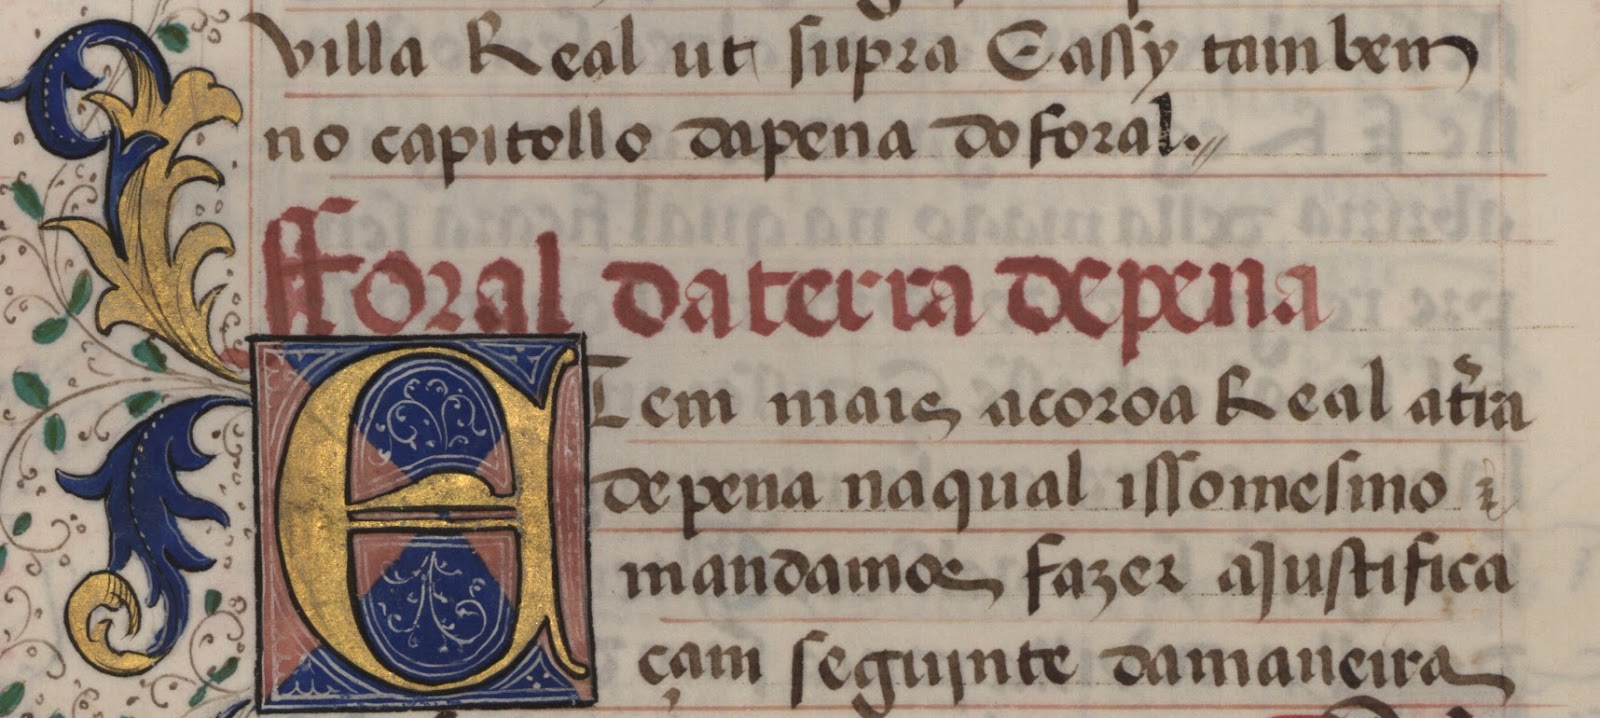 villa Real ut supra Eassy tambem
no capitollo dapena do foral.
fforal da terra depena
E Tem mais acoroa Real at̃ra
depena naqual issomesmo
mandamos fazer ajustifica
çam seguinte damaneira